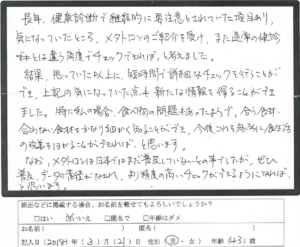 長年、健康診断で継続的に要注意とされていた項目あり、
気になっていたところ、メタトロンのご紹介を受け、また通常の健診
とは違う角度でチェックできれば、と考えました。
結果、思っていた以上に、短時間で詳細なチェックを行うことができ、
上記の気になっていた点＋新たな情報を得ることができ
ました。特に私の場合、食べ物の問題もあったようで、合う食材・
合わない食材をかなり細かく知ることができ、今後これを参考に食生活
の改善をはかることができれば、と思います。
なお、メタトロンは日本ではまだ普及していないとの事でしたが、ぜひ
普及、データの蓄積がなされ、より精度の高いチェックができるようになれば、
と思います。
紙面などに掲載する場合、お名前を載せてもよろしいでしょうか？
□はい □いいえ □匿名で □年齢はダメ
記入日(2018)年(3)月(21)日 性別(男・女) 年齢(43)歳
お名前